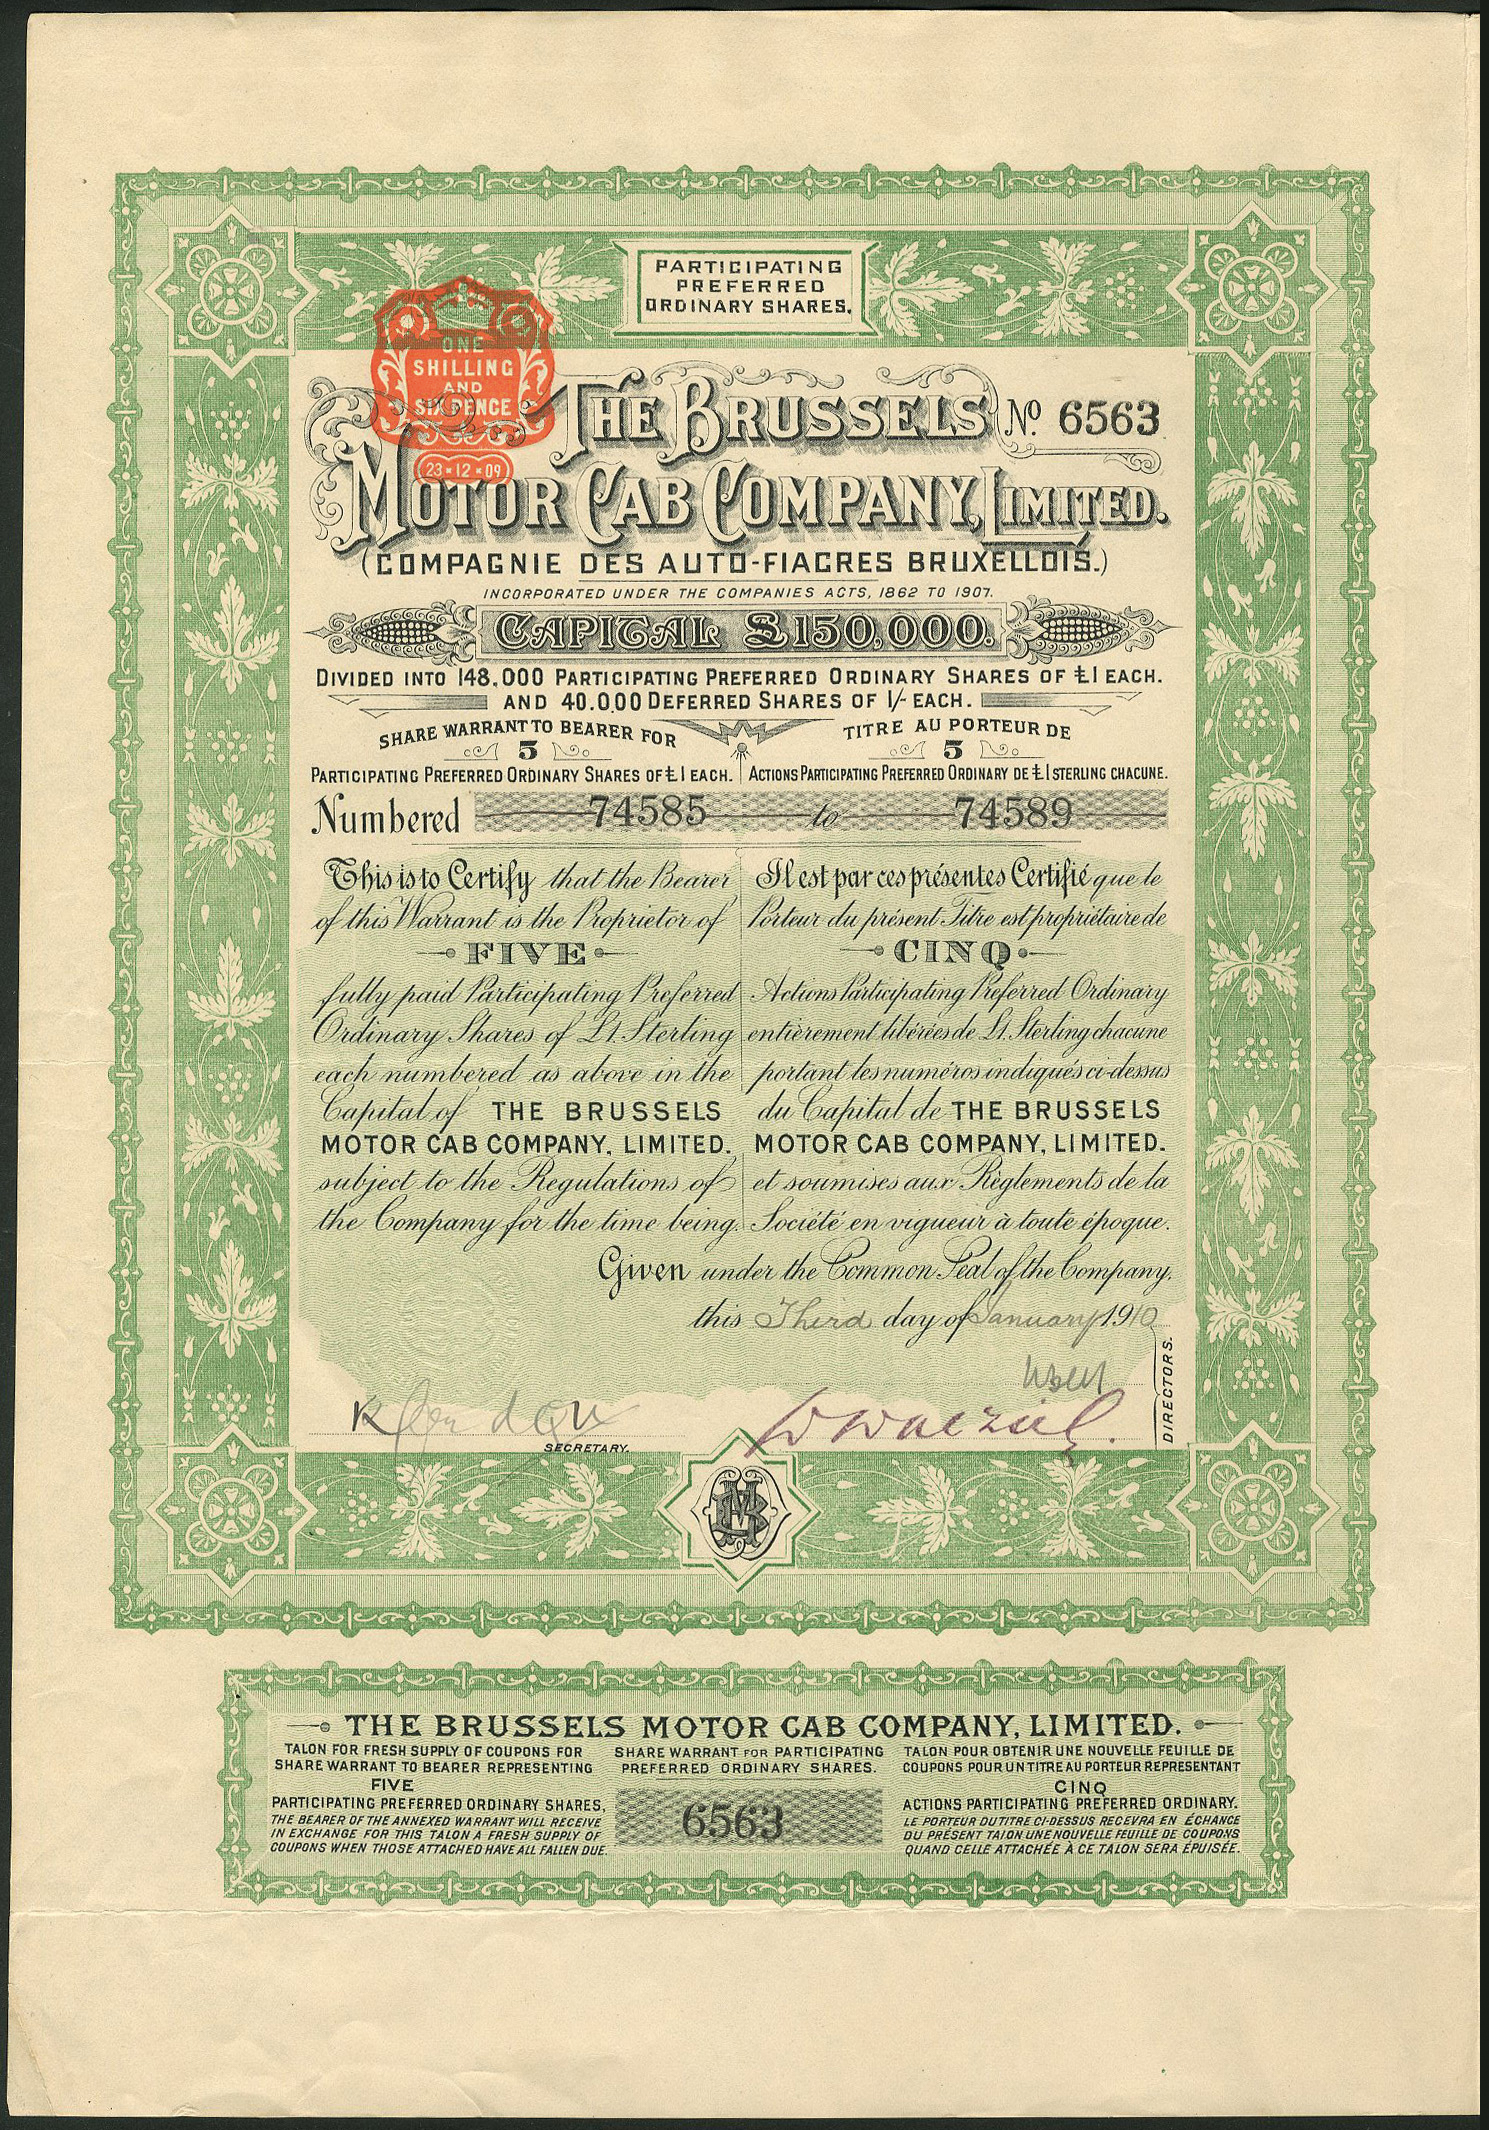 PARTICIPATING
PREFERRED
ORDINARY SHARES.
ONE
SHILLING
AND
SIXPENCE
23·12·09
THE BRUSSELS
No 6563
MOTOR CAB COMPANY, LIMITED.
(COMPAGNIE DES AUTO-FIACRES BRUXELLOIS.)
INCORPORATED UNDER THE COMPANIES ACTS, 1862 TO 1907.
CAPITAL £150,000.
DIVIDED INTO 148.000 PARTICIPATING PREFERRED ORDINARY SHARES OF £1 EACH.
AND 40.000 DEFERRED SHARES OF 1/- EACH.
SHARE WARRANT TO BEARER FOR
5
PARTICIPATING PREFERRED ORDINARY SHARES OF £1 EACH.
TITRE AU PORTEUR DE
5
ACTIONS PARTICIPATING PREFERRED ORDINARY DE £1 STERLING CHACUNE.
Numbered 74585 to 74589
This is to Certify that the Bearer
of this Warrant is the Proprietor of
FIVE
fully paid Participating Preferred
Ordinary Shares of £1. Sterling
each numbered as above in the
Capital of THE BRUSSELS
MOTOR CAB COMPANY, LIMITED.
subject to the Regulations of
the Company for the time being.
Il est par ces présentes Certifié que le
Porteur du présent Titre est propriétaire de
CINQ
Actions Participating Preferred Ordinary
entièrement libérées de £1. Sterling chacune
portant les numéros indiqués ci-dessus
du Capital de THE BRUSSELS
MOTOR CAB COMPANY, LIMITED.
et soumises aux Règlements de la
Société en vigueur à toute époque.
Given under the Common Seal of the Company,
this Third day of January 1910
DIRECTORS.
SECRETARY.
THE BRUSSELS MOTOR CAB COMPANY, LIMITED.
TALON FOR FRESH SUPPLY OF COUPONS FOR
SHARE WARRANT TO BEARER REPRESENTING
FIVE
PARTICIPATING PREFERRED ORDINARY SHARES,
THE BEARER OF THE ANNEXED WARRANT WILL RECEIVE
IN EXCHANGE FOR THIS TALON A FRESH SUPPLY OF
COUPONS WHEN THOSE ATTACHED HAVE ALL FALLEN DUE.
SHARE WARRANT FOR PARTICIPATING
PREFERRED ORDINARY SHARES.
6563
TALON POUR OBTENIR UNE NOUVELLE FEUILLE DE
COUPONS POUR UN TITRE AU PORTEUR REPRESENTANT
CINQ
ACTIONS PARTICIPATING PREFERRED ORDINARY.
LE PORTEUR DU TITRE CI-DESSUS RECEVRA EN ÉCHANGE
DU PRÉSENT TALON UNE NOUVELLE FEUILLE DE COUPONS
QUAND CELLE ATTACHÉE À CE TALON SERA ÉPUISÉE.